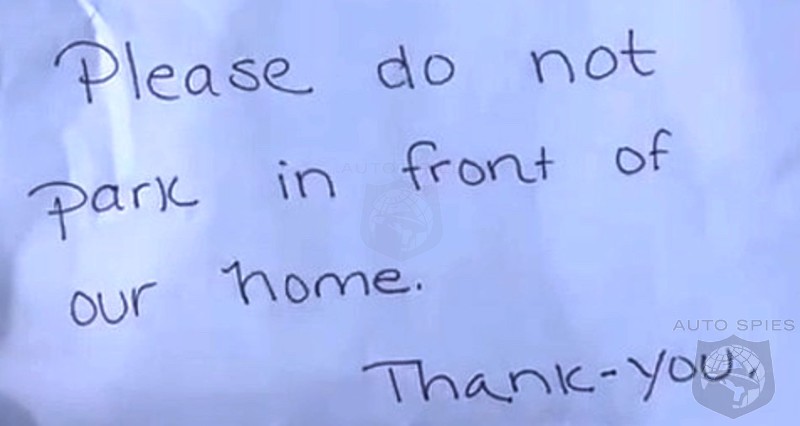 Please do not
park in front of
our home.
Thank-you.
AUTO SPIES